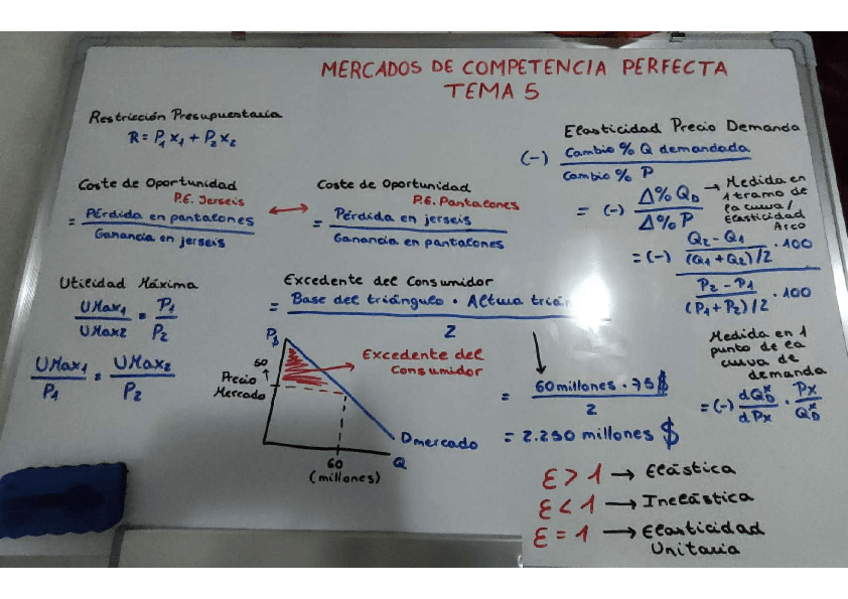 MERCADOS DE COMPETENCIA PERFECTA
TEMA 5
Restricción Presupuestaria
R = P1 x1 + P2 x2
Coste de Oportunidad
P.E. Jerseis
= Pérdida en pantalones
Ganancia en jerseis
Coste de Oportunidad
P.E. Pantalones
= Pérdida en jerseis
Ganancia en pantalones
Utilidad Máxima
UMax1 = P1
UMax2 P2
UMax1 = UMax2
P1 P2
Excedente del Consumidor
= Base del triángulo · Altura
2
P$
60
Precio
Mercado
Excedente del
Consumidor
Dmercado
60
(millones)
Q
= 60 millones · 75 $
2
= 2.250 millones $
Elasticidad Precio Demanda
(-) Cambio % Q demandada
Cambio % P
= (-) Δ% QD
Δ% P
→ Medida en
1 tramo de
la curva /
Elasticidad
Arco
= (-) Q2 - Q1 · 100
(Q1 + Q2) / 2
P2 - P1 · 100
(P1 + P2) / 2
Medida en 1
punto de la
curva de
demanda
= (-) dQDx · Px
dPx QDx
ε > 1 → Elástica
ε < 1 → Inelástica
ε = 1 → Elasticidad
Unitaria